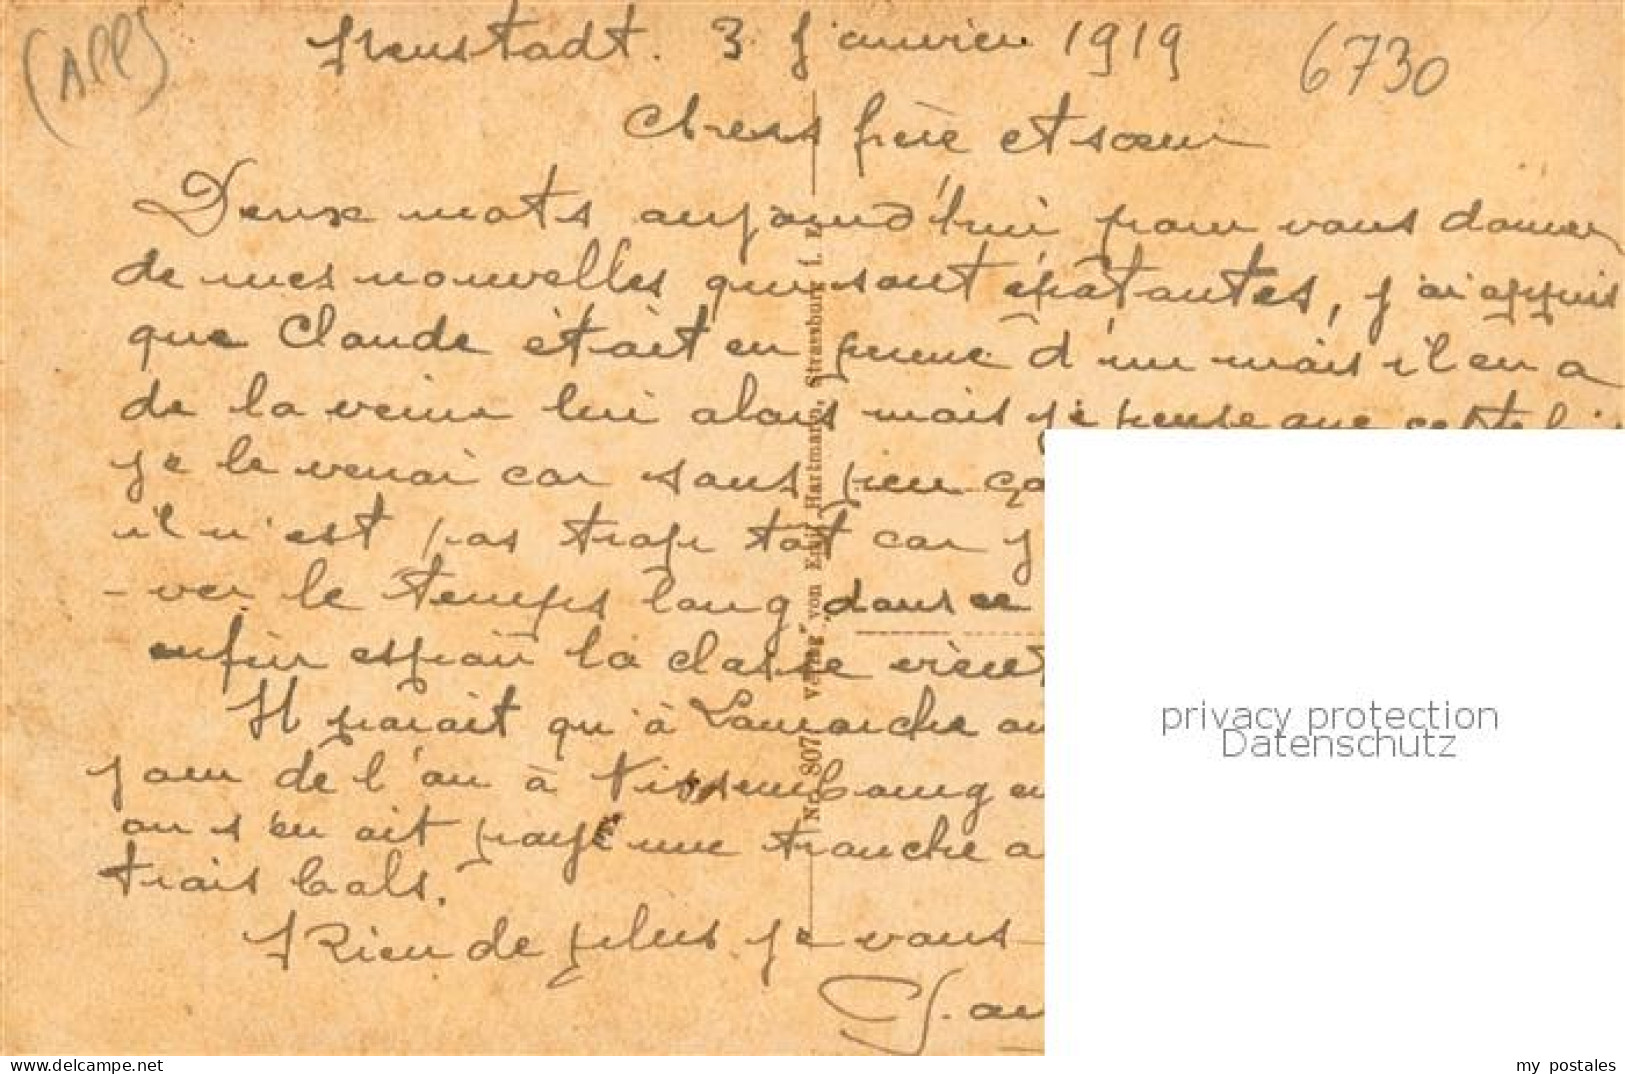 (App)
Neustadt. 3 Janvier 1919
6730
Chers frère et sœur
Deux mots aujourd'hui pour vous donner
de mes nouvelles qui sont épatantes, j'ai appris
que Claude était en perme d'un mais il en a
de la veine lui alors mais je pense que cette
je le verrai car sans rien
il n'est pas trop tot car j
-ver le temps long dans ce
enfin espoir la classe vient
Il parait qu'à Lamarche au
jour de l'an à Vissembourg
on s'en ait payé une tranche a
trois bals.
Rien de plus je vous
Nr. 807 Verlag von Emil Hartmann, Strassburg i. E.
privacy protection
Datenschutz
delcampe.net
my_postales